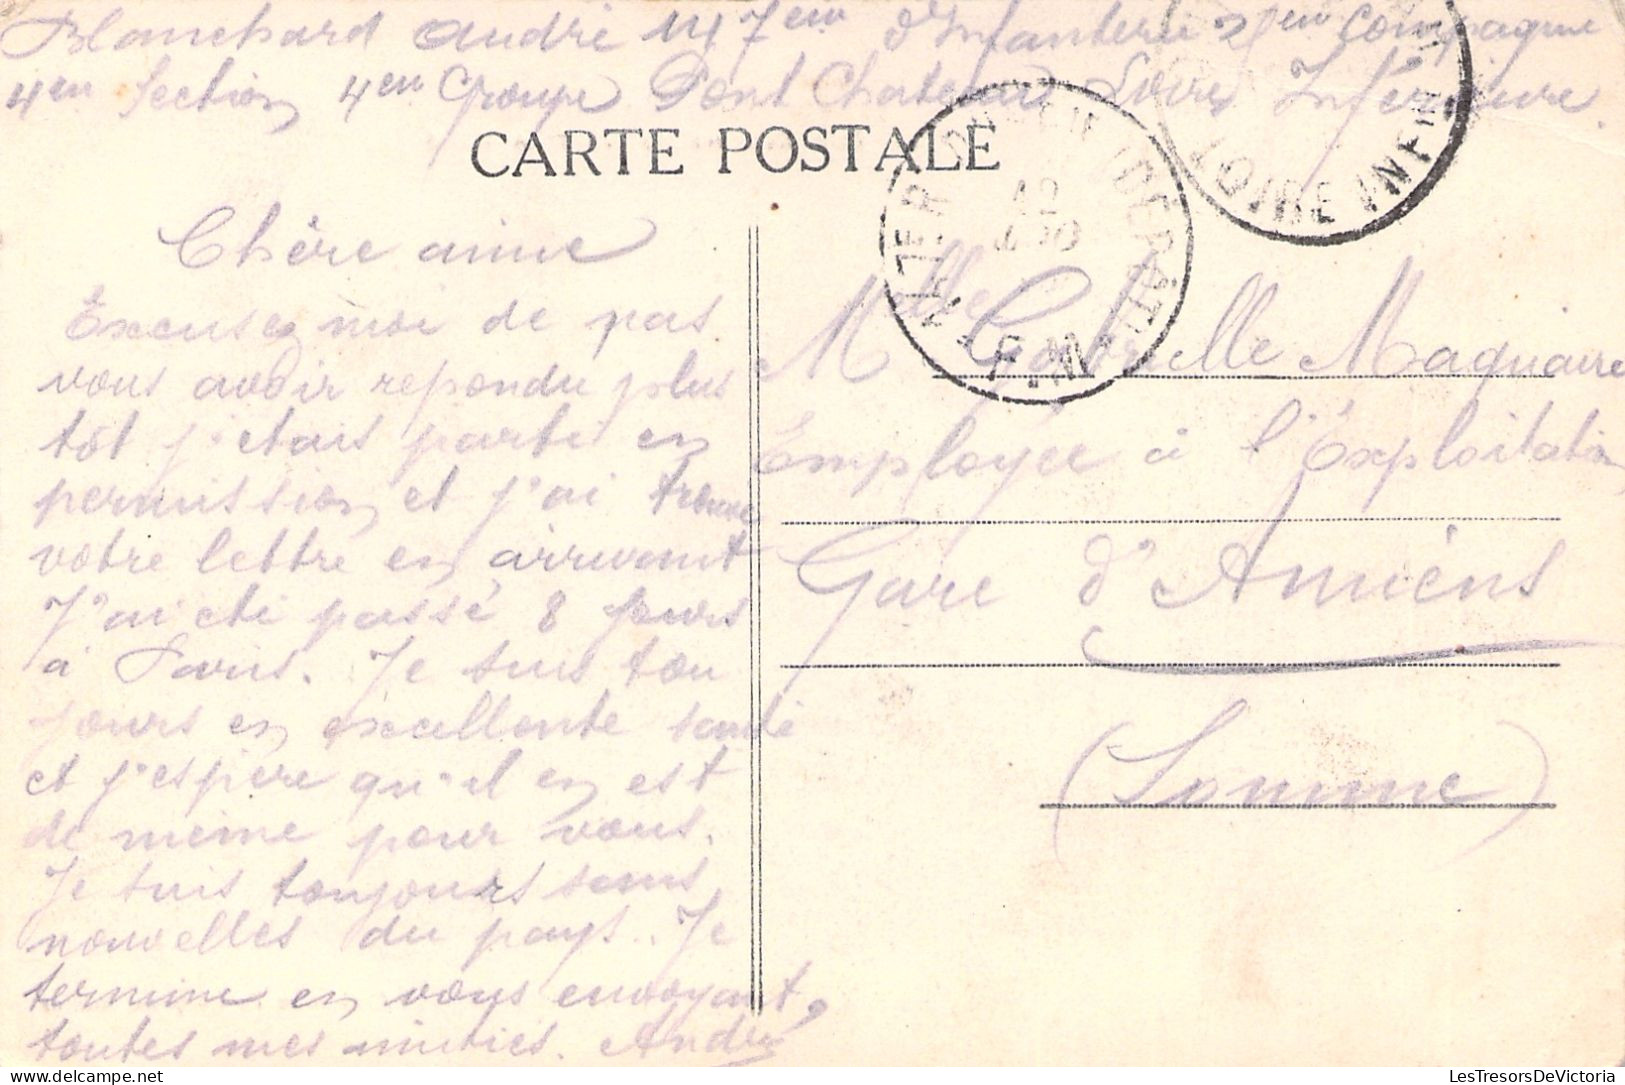 Blanchard André 147eme d'Infanterie eme Compagnie
4em Section 4em Groupe Pont Chateau Loire Inférieure.
CARTE POSTALE
LOIRE INFRE
Chère amie
Excusez moi de pas
vous avoir repondu plus
tôt j'etais parti en
permission et j'ai trouvé
votre lettre en arrivant
J'ai été passé 8 jours
à Paris. Je suis tou
jours en excellente santé
et j'espère qu'il en est
de même pour vous.
Je suis toujours sans
nouvelles du pays. Je
termine en vous envoyant,
toutes mes amitiés. André
Melle Gabrielle Maquaire
Employee à l'Exploitation
Gare d'Amiéns
(Somme)
LesTresorsDeVictoria